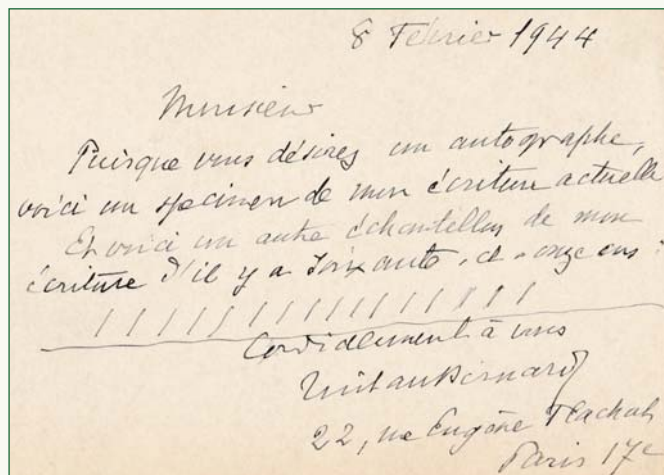 8 Février 1944
Monsieur
Puisque vous désirez un autographe,
voici un specimen de mon écriture actuelle
Et voici un autre échantillon de mon
écriture d'il y a soixante-et-onze ans :
/ / / / / / / / / / / / / / / /
Cordialement à vous
Tristan Bernard
22, rue Eugène Flachat
Paris 17e